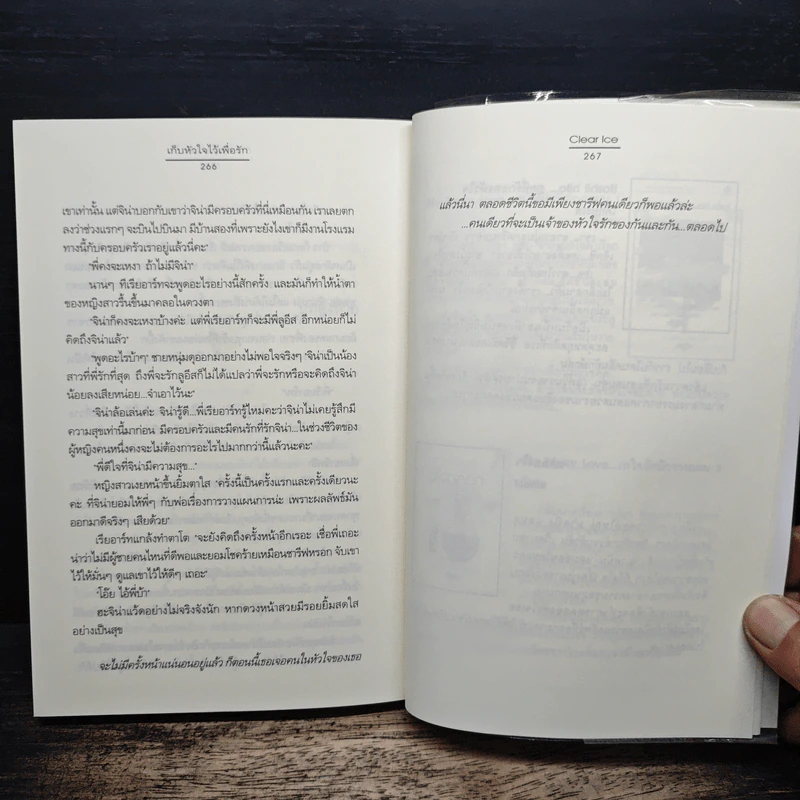 เก็บหัวใจไว้เพื่อรัก
266
เขาเท่านั้น แต่จิน่าบอกกับเขาว่าจิน่ามีครอบครัวที่นี่เหมือนกัน เราเลยตก
ลงว่าช่วงแรกๆ จะบินไปบินมา มีบ้านสองที่เพราะยังไงเขาก็มีงานโรงแรม
ทางนี้กับครอบครัวเราอยู่แล้วนี่คะ"
"พี่คงจะเหงา ถ้าไม่มีจิน่า"
นานๆ ทีเรียอาร์ทจะพูดอะไรอย่างนี้สักครั้ง และมันก็ทำให้น้ำตา
ของหญิงสาวรื้นขึ้นมาคลอในดวงตา
"จิน่าก็คงจะเหงาบ้างค่ะ แต่พี่เรียอาร์ทก็จะมีพี่ลูอีส อีกหน่อยก็ไม่
คิดถึงจิน่าแล้ว"
"พูดอะไรบ้าๆ" ชายหนุ่มดุออกมาอย่างไม่พอใจจริงๆ "จิน่าเป็นน้อง
สาวที่พี่รักที่สุด ถึงพี่จะรักลูอีสก็ไม่ได้แปลว่าพี่จะรักหรือจะคิดถึงจิน่า
น้อยลงเสียหน่อย...จำเอาไว้นะ"
"จิน่าล้อเล่นค่ะ จิน่ารู้ดี...พี่เรียอาร์ทรู้ไหมคะว่าจิน่าไม่เคยรู้สึกมี
ความสุขเท่านี้มาก่อน มีครอบครัวและมีคนรักที่รักจิน่า...ในช่วงชีวิตของ
ผู้หญิงคนหนึ่งคงจะไม่ต้องการอะไรไปมากกว่านี้แล้วนะคะ"
"พี่ดีใจที่จิน่ามีความสุข..."
หญิงสาวเงยหน้าขึ้นยิ้มตาใส "ครั้งนี้เป็นครั้งแรกและครั้งเดียวนะ
คะ ที่จิน่ายอมให้พี่ๆ กับพ่อเรื่องการวางแผนการน่ะ เพราะผลลัพธ์มัน
ออกมาดีจริงๆ เสียด้วย"
เรียอาร์ทแกล้งทำตาโต "จะยังคิดถึงครั้งหน้าอีกเรอะ เชื่อพี่เถอะ
น่าว่าไม่มีผู้ชายคนไหนที่ดีพอและยอมโชคร้ายเหมือนชารีฟหรอก จับเขา
ไว้ให้มั่นๆ ดูแลเขาไว้ให้ดีๆ เถอะ"
"โอ๊ย ไอ้พี่บ้า"
ฮะจิน่าแว้ดอย่างไม่จริงจังนัก หากดวงหน้าสวยมีรอยยิ้มสดใส
อย่างเป็นสุข
จะไม่มีครั้งหน้าแน่นอนอยู่แล้ว ก็ตอนนี้เธอเจอคนในหัวใจของเธอ
Clear Ice
267
แล้วนี่นา ตลอดชีวิตนี้ขอมีเพียงชารีฟคนเดียวก็พอแล้วล่ะ
...คนเดียวที่จะเป็นเจ้าของหัวใจรักของกันและกัน...ตลอดไป